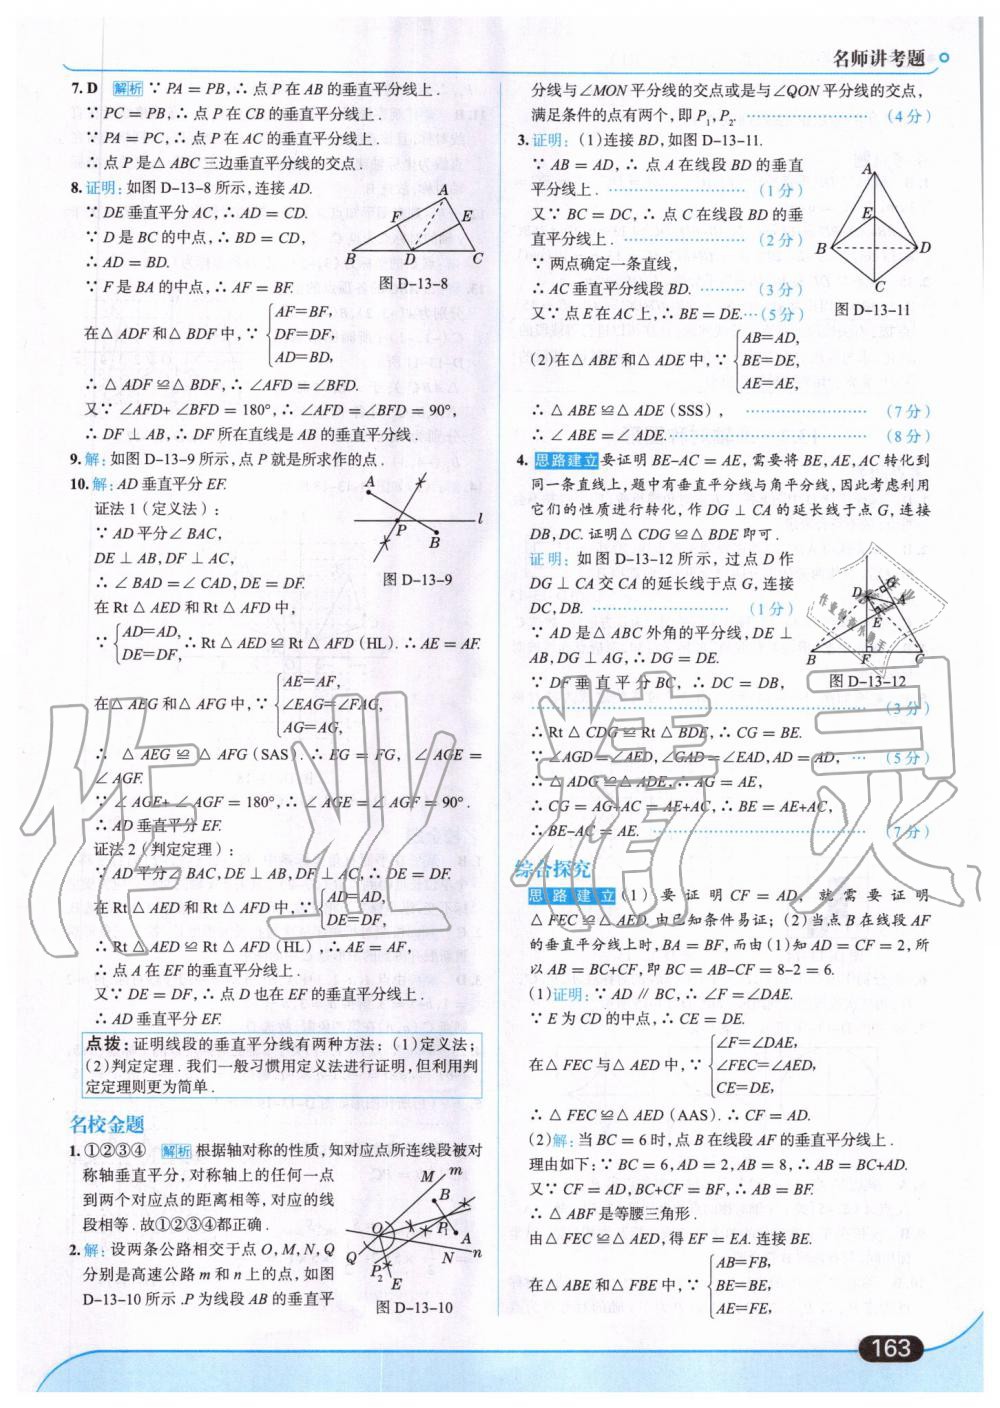 名师讲考题
7. D 解析 ∵ PA = PB,∴ 点 P 在 AB 的垂直平分线上.
∵ PC = PB,∴ 点 P 在 CB 的垂直平分线上.
∵ PA = PC,∴ 点 P 在 AC 的垂直平分线上.
∴ 点 P 是△ ABC 三边垂直平分线的交点.
8. 证明: 如图 D-13-8 所示,连接 AD.
∵ DE 垂直平分 AC,∴ AD = CD.
∵ D 是 BC 的中点,∴ BD = CD,
∴ AD = BD.
∵ F 是 BA 的中点,∴ AF = BF.
A
F
E
B
D
C
图 D-13-8
在△ ADF 和△ BDF 中,∵
AF=BF,
DF=DF,
AD=BD,
∴ △ ADF ≌△ BDF,∴ ∠AFD =∠BFD.
又∵ ∠AFD+ ∠BFD = 180°,∴ ∠AFD =∠BFD = 90°,
∴ DF ⊥ AB,∴ DF 所在直线是 AB 的垂直平分线.
9. 解: 如图 D-13-9 所示,点 P 就是所求作的点.
10. 解: AD 垂直平分 EF.
证法 1(定义法):
∵ AD 平分∠ BAC,
DE ⊥ AB,DF ⊥ AC,
∴ ∠ BAD =∠ CAD,DE = DF.
A
l
P
B
图 D-13-9
在 Rt △ AED 和 Rt △ AFD 中,
∵
AD=AD,
DE=DF,
∴ Rt △ AED ≌ Rt △ AFD (HL).∴ AE = AF.
在△ AEG 和△ AFG 中,∵
AE=AF,
∠EAG=∠FAG,
AG=AG,
∴ △ AEG ≌ △ AFG (SAS).∴ EG = FG, ∠ AGE =
∠ AGF.
∵ ∠ AGE+ ∠ AGF = 180°,∴ ∠ AGE =∠ AGF = 90°.
∴ AD 垂直平分 EF.
证法 2(判定定理):
∵ AD 平分∠ BAC,DE ⊥ AB,DF ⊥ AC,∴ DE = DF.
在 Rt △ AED 和 Rt △ AFD 中,∵
AD=AD,
DE=DF,
∴ Rt △ AED ≌ Rt △ AFD (HL),∴ AE = AF,
∴ 点 A 在 EF 的垂直平分线上.
又∵ DE = DF,∴ 点 D 也在 EF 的垂直平分线上.
∴ AD 垂直平分 EF.
点拨: 证明线段的垂直平分线有两种方法: (1)定义法;
(2)判定定理.我们一般习惯用定义法进行证明,但利用判
定定理则更为简单.
名校金题
1. ①②③④ 解析 根据轴对称的性质,知对应点所连线段被对
称轴垂直平分,对称轴上的任何一点
到两个对应点的距离相等,对应的线
段相等.故①②③④都正确.
2. 解: 设两条公路相交于点 O,M,N,Q
分别是高速公路 m 和 n 上的点,如图
D-13-10 所示.P 为线段 AB 的垂直平
M
m
B
O
P1
A
Q
N
n
P2
E
图 D-13-10
分线与∠MON 平分线的交点或是与∠QON 平分线的交点,
满足条件的点有两个,即 P1,P2. ………………… (4 分)
3. 证明: (1)连接 BD,如图 D-13-11.
∵ AB = AD,∴ 点 A 在线段 BD 的垂直
平分线上. ………………… (1 分)
又∵ BC = DC,∴ 点 C 在线段 BD 的垂
直平分线上. ………………… (2 分)
∵ 两点确定一条直线,
∴ AC 垂直平分线段 BD. ……… (3 分)
又∵ 点 E 在 AC 上,∴ BE = DE.…(5 分)
A
E
B
D
C
图 D-13-11
(2)在△ ABE 和△ ADE 中,∵
AB=AD,
BE=DE,
AE=AE,
∴ △ ABE ≌△ ADE (SSS), ………………… (7 分)
∴ ∠ ABE =∠ ADE. ………………………… (8 分)
4. 思路建立 要证明 BE-AC = AE,需要将 BE,AE,AC 转化到
同一条直线上,题中有垂直平分线与角平分线,因此考虑利用
它们的性质进行转化,作 DG ⊥ CA 的延长线于点 G,连接
DB,DC.证明△ CDG ≌△ BDE 即可.
证明: 如图 D-13-12 所示,过点 D 作
DG ⊥ CA 交 CA 的延长线于点 G,连接
DC,DB. ………………… (1 分)
∵ AD 是△ ABC 外角的平分线,DE ⊥
AB,DG ⊥ AG,∴ DG = DE.
∵ DF 垂直平分 BC,∴ DC = DB,
………………………… (3 分)
G
D
A
E
B
F
C
图 D-13-12
∴ Rt △ CDG ≌ Rt △ BDE,∴ CG = BE.
∵ ∠AGD =∠AED,∠GAD =∠EAD,AD = AD, … (5 分)
∴ △ ADG ≌△ ADE,∴ AG = AE,
∴ CG = AG+AC = AE+AC,∴ BE = AE+AC,
∴ BE-AC = AE. ………………………… (7 分)
综合探究
思路建立 (1) 要证明 CF = AD, 就需要证明
△ FEC ≌△ AED.由已知条件易证; (2)当点 B 在线段 AF
的垂直平分线上时,BA = BF,而由(1)知 AD = CF = 2,所
以 AB = BC+CF,即 BC = AB-CF = 8-2 = 6.
(1)证明: ∵ AD ∥ BC,∴ ∠F =∠DAE.
∵ E 为 CD 的中点,∴ CE = DE.
在△ FEC 与△ AED 中,∵
∠F=∠DAE,
∠FEC=∠AED,
CE=DE,
∴ △ FEC ≌△ AED (AAS).∴ CF = AD.
(2)解: 当 BC = 6 时,点 B 在线段 AF 的垂直平分线上.
理由如下: ∵ BC = 6,AD = 2,AB = 8,∴ AB = BC+AD.
又∵ CF = AD,BC+CF = BF,∴ AB = BF.
∴ △ ABF 是等腰三角形.
由△ FEC ≌△ AED,得 EF = EA.连接 BE.
在△ ABE 和△ FBE 中,∵
AB=FB,
BE=BE,
AE=FE,
163
作业精灵